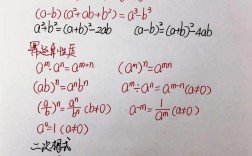 (a-b)(a²+ab+b²)=a³-b³
a²+b²=(a+b)²-2ab (a-b)²=(a+b)²-4ab
幂运算性质
aᵐ·aⁿ=aᵐ⁺ⁿ (aᵐ)ⁿ=aᵐⁿ
(ab)ⁿ=aⁿbⁿ aᵐ÷aⁿ=aᵐ⁻ⁿ(a≠0)
(a/b)ⁿ=aⁿ/bⁿ(b≠0) a⁻ᵐ=1/aᵐ(a≠0)
a⁰=1(a≠0)
二次根式